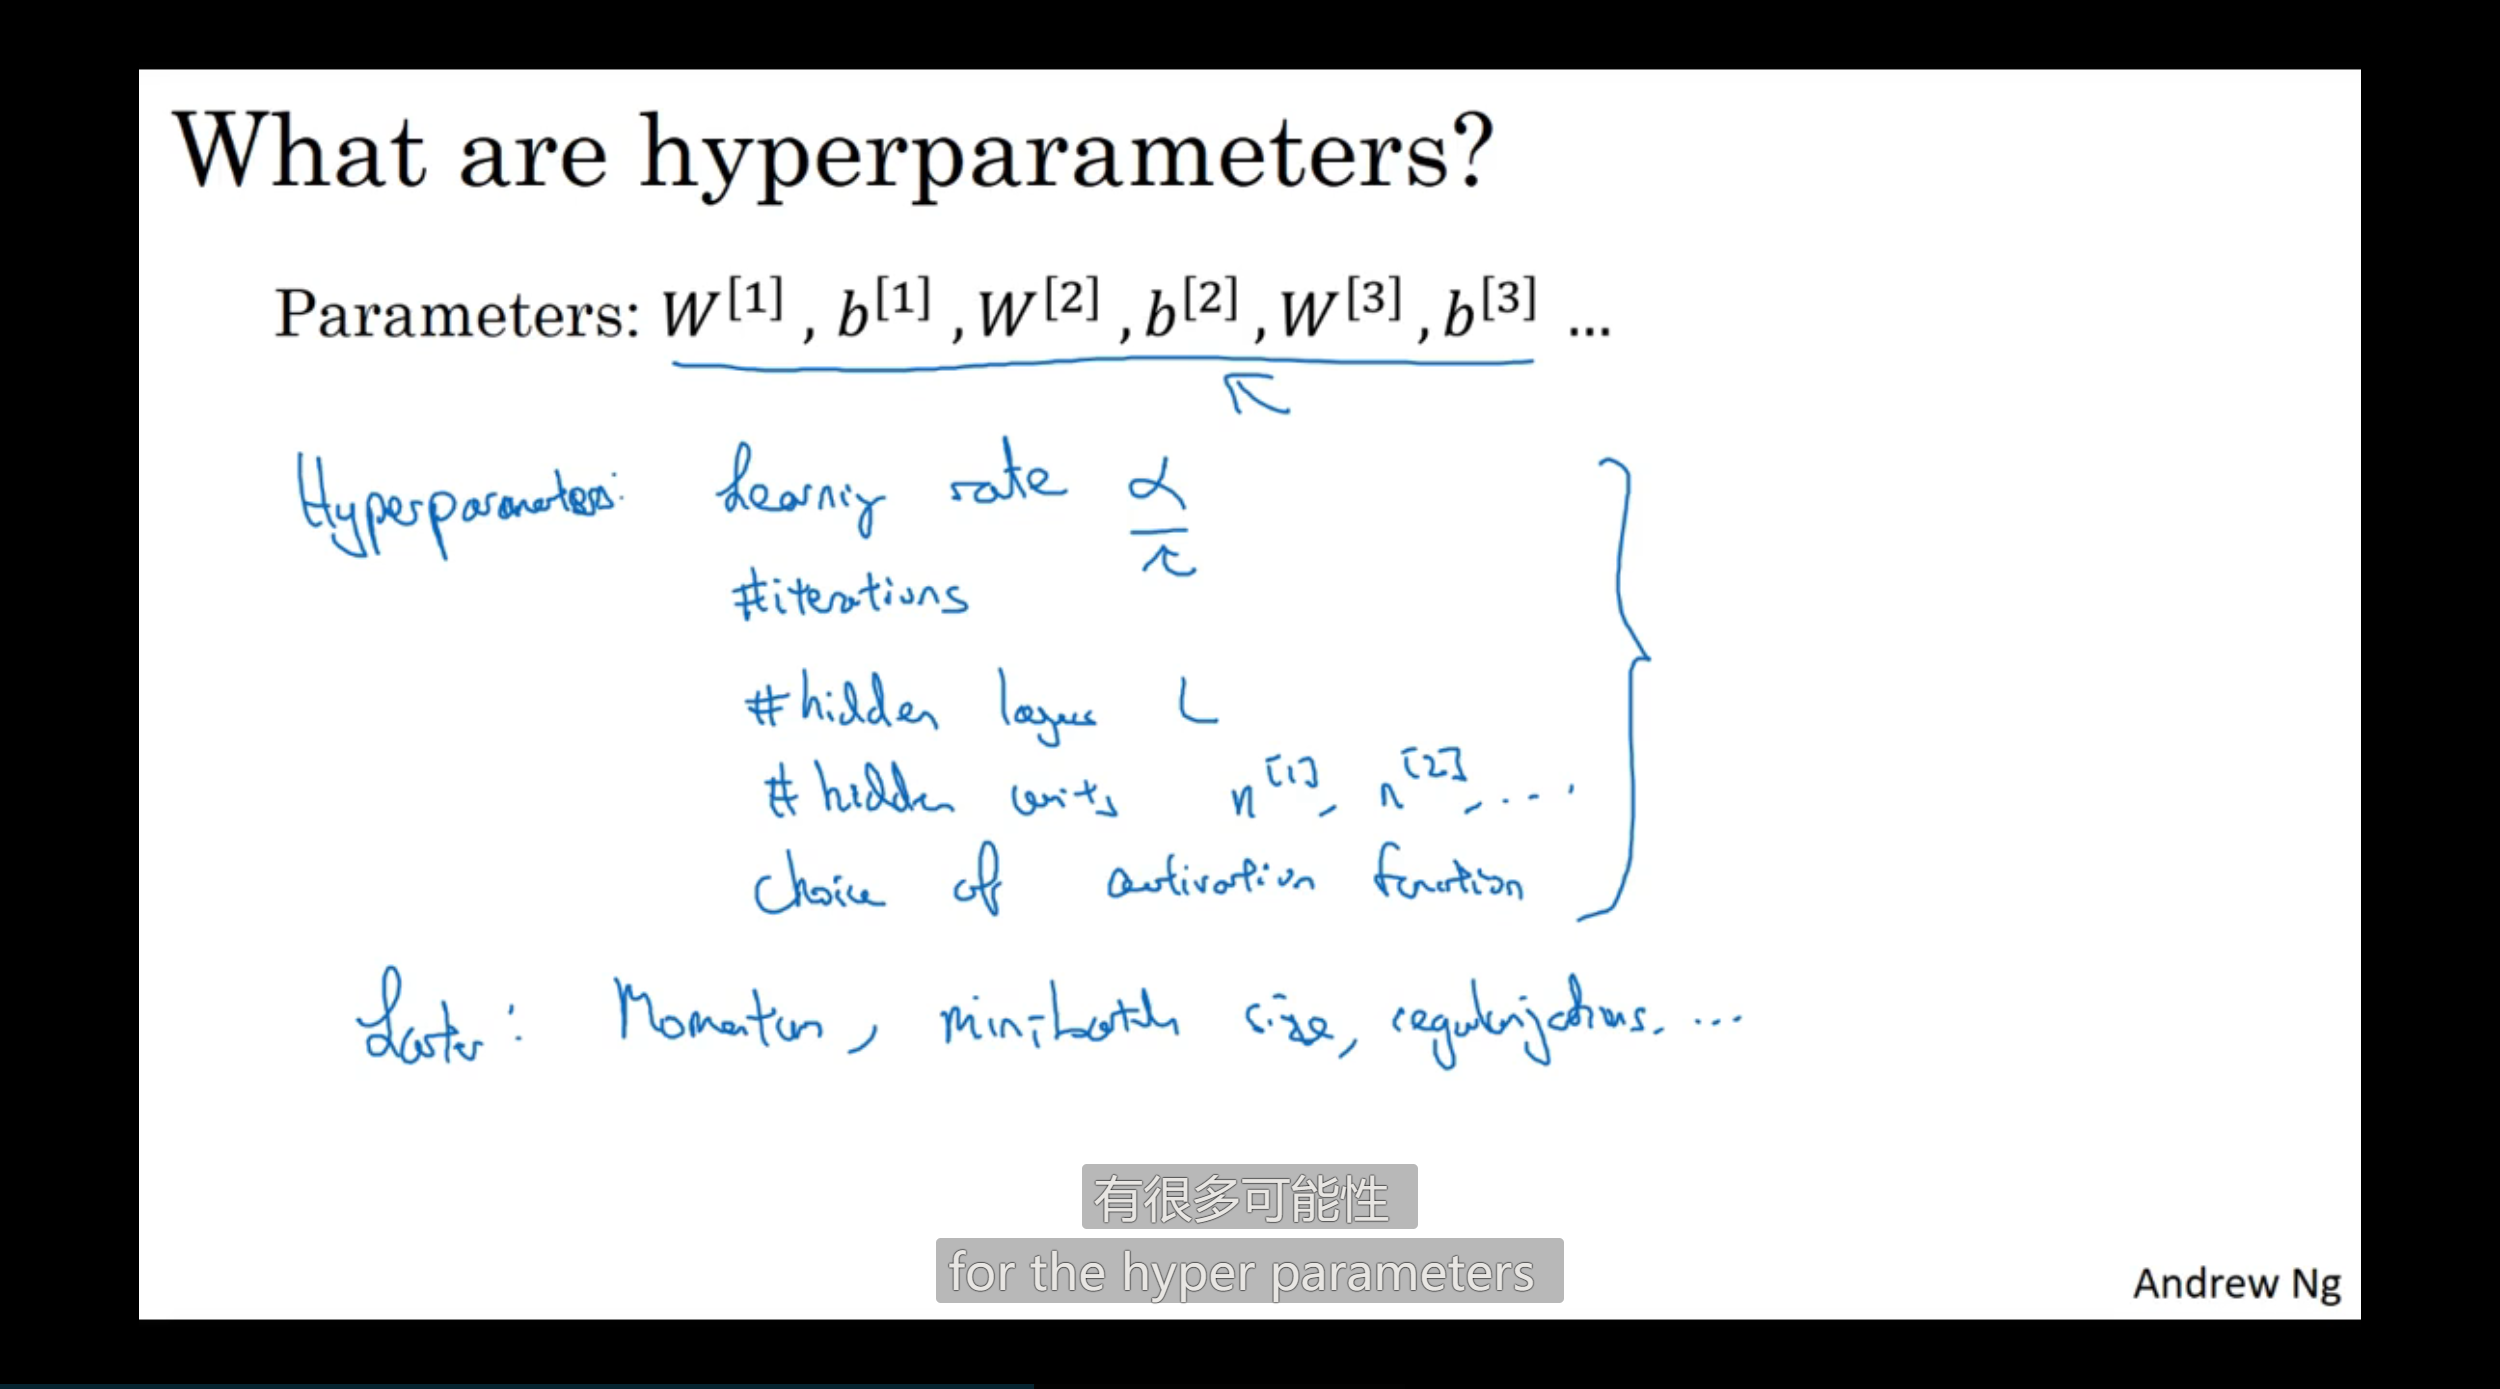 What are hyperparameters?
Parameters: W[1] , b[1] , W[2] , b[2] , W[3] , b[3] ...
Hyperparameters: Learning rate α
#iterations
#hidden layers L
#hidden units n[1], n[2], ....
Choice of activation function
Later: Momentum, minibatch size, regularizations. ...
有很多可能性
for the hyper parameters
Andrew Ng